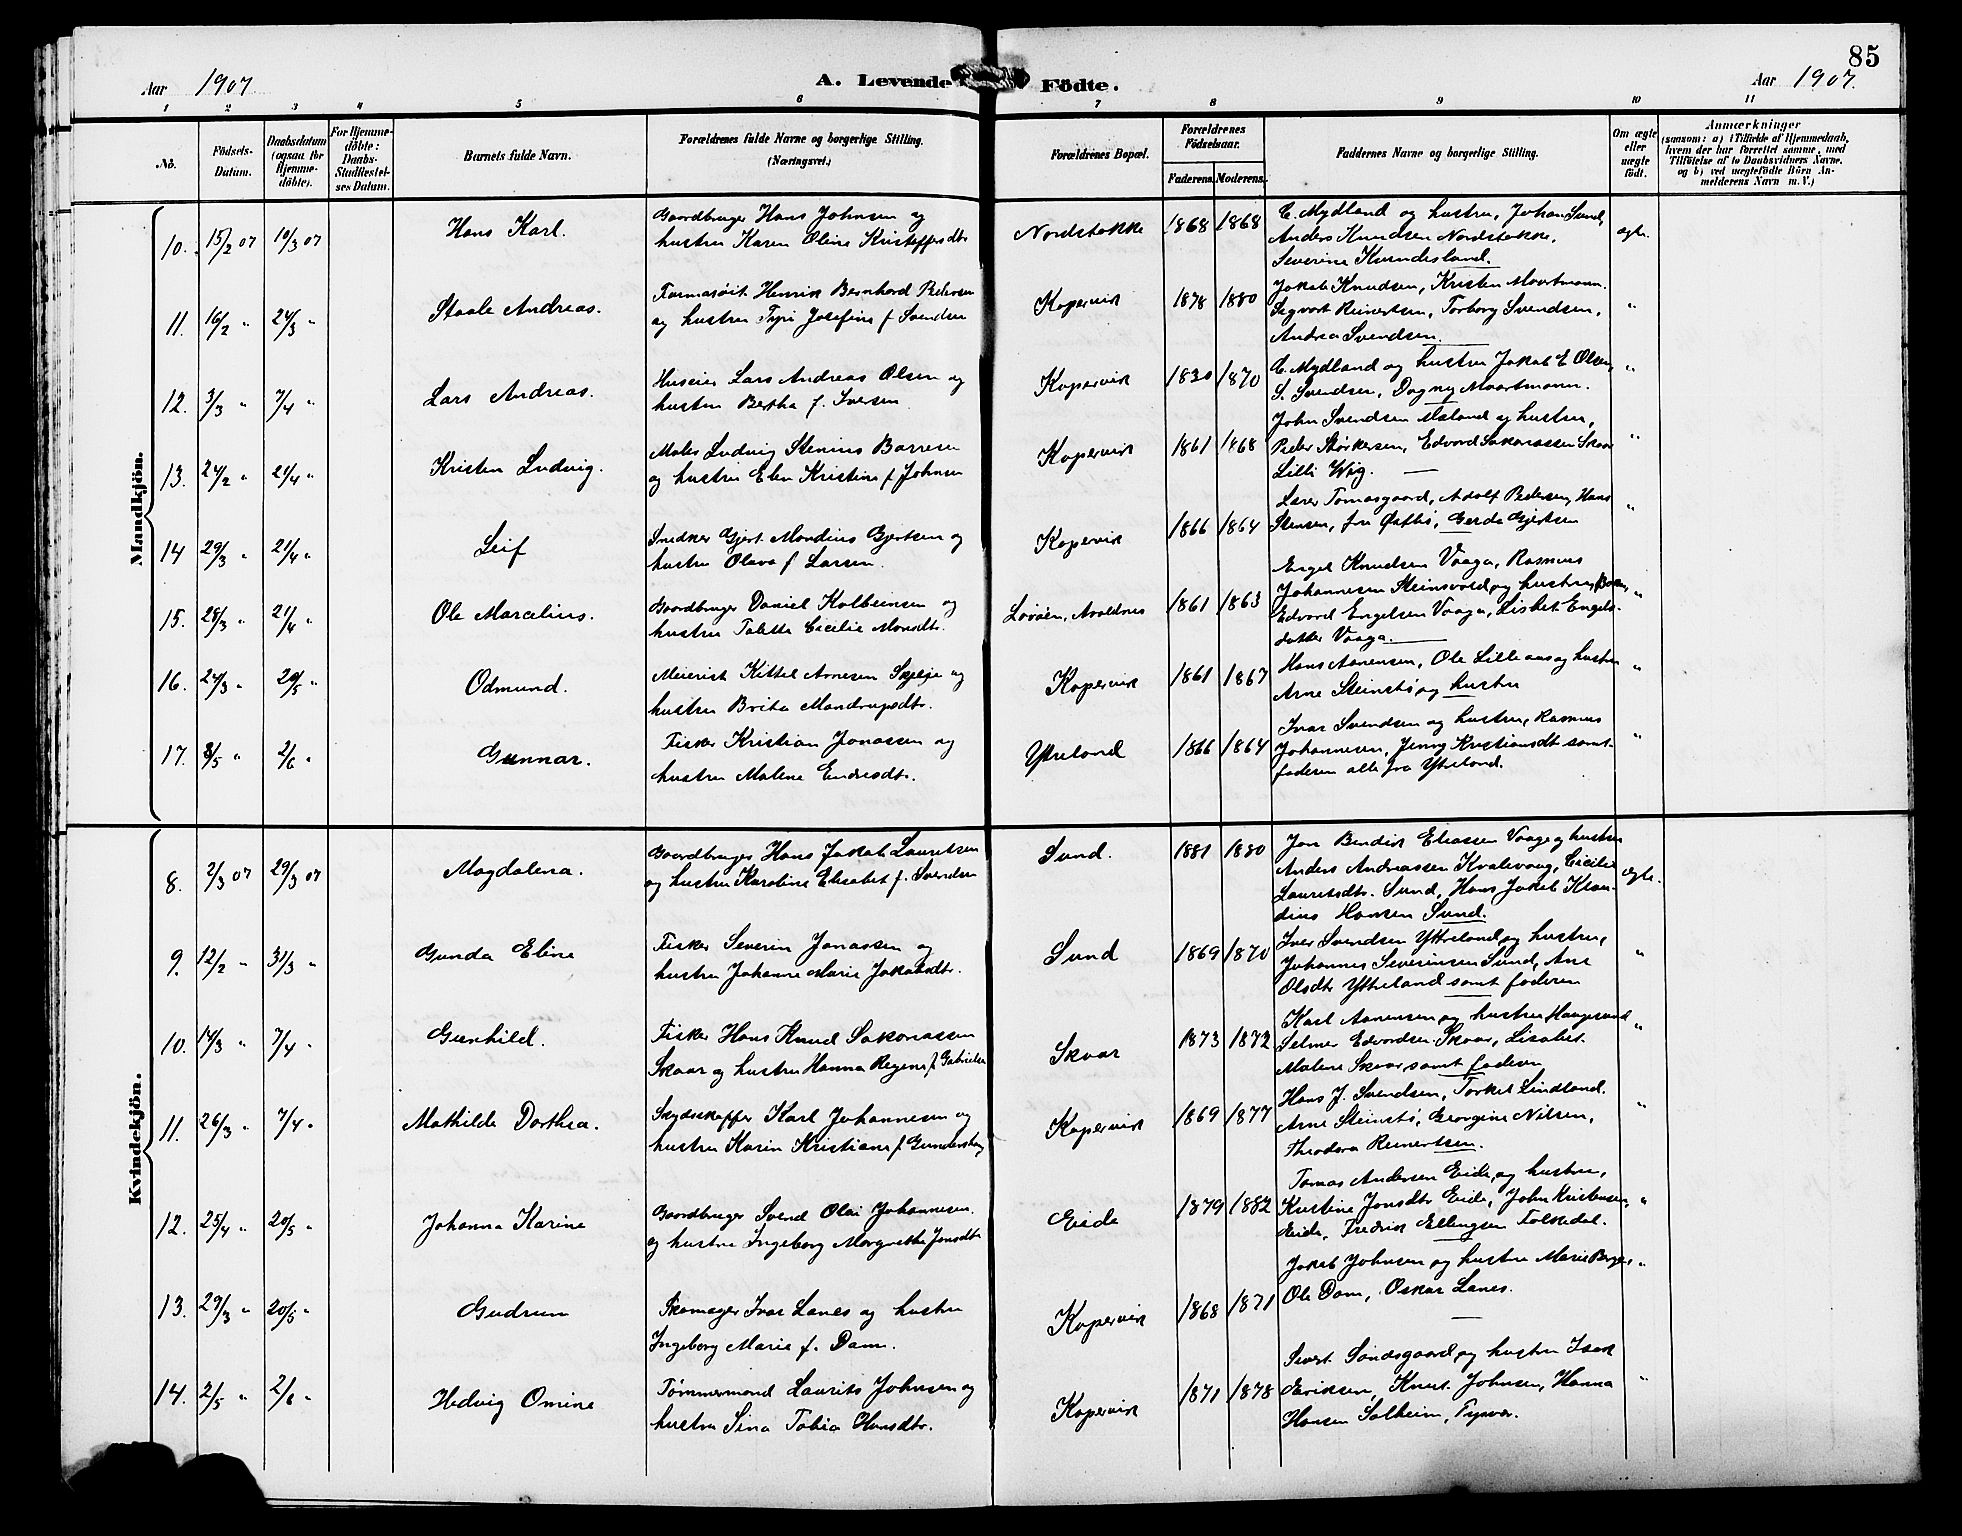 85
Aar 1907 A. Levende Födte. Aar 1907.
1 2 3 4 5 6 7 8 9 10 11
No. Födsels-Datum. Daabsdatum (ogsaa for Hjemme-döbte). For Hjemme-döbte: Daabs-Stadfæstel-ses Datum. Barnets fulde Navn. Forældrenes fulde Navne og borgerlige Stilling. (Næringsvei.) Forældrenes Bopæl. Forældrenes Födselsaar. Faderens. Moderens. Faddernes Navne og borgerlige Stilling. Om ægte eller uægte født. Anmærkninger (saasom: a) i Tilfælde af Hjemmedaab, hvem der har forrettet samme, med Tilföielse af to Daabsvidners Navne, og b) ved uægtefödte Börn An-melderens Navn m. V.)
Mandkjön.
10. 15/2 07 10/3 07 Hans Karl. Gaardbruger Hans Johnsen og
hustru Karen Oline Kristoffersdtr Nordstokke 1868 1868 C. Mydland og hustru, Johan Sund,
Anders Knudsen Nordstokke,
Severine Kvindesland. ægte.
11. 16/2 " 24/3 " Staale Andreas. Henrik Bernhard Pedersen
og hustru Tyri Josefine f. Svendsen Kopervik 1878 1880 Jakob Knudsen, Kristen Maartmann.
Sigvart Reinertsen, Torborg Svendsen,
Andrea Svendsen. "
12. 3/3 " 7/4 " Lars Andreas. Huseier Lars Andreas Olsen og
hustru Bertha f. Iversen Kopervik 1830 1870 C. Mydland og hustru Jakob E Olsen,
S. Svendsen, Dagny Maartmann. "
13. 24/2 " 21/4 " Kristen Ludvig. Maler Ludvig Stenius Borresen
og hustru Elen Kristine f Johnsen Kopervik 1861 1868 John Svendsen Maland og hustru,
Peder Størkersen, Edvard Sakariassen Skaar
Lilli Wig. "
14 29/3 " 21/4 " Leif Snedker Gjert Mandius Gjertsen og
hustru Olava f Larsen. Kopervik 1866 1864 Lærer Tomasgaard, Adolf Pedersen, Hans
Stensen, fru Østbö, Gerda Gjertsen "
15. 28/3 " 21/4 " Ole Marcelius. Gaardbruger Daniel Kolbeinsen og
hustru Talette Cecilie Monsdtr. Lovöen, Avaldnes 1861 1863 Engel Knudsen Vaaga, Rasmus
Johannesen Steinsvold og hustru, Boken,
Edvard Engelsen Vaaga, Lisbet Engels-
datter Vaaga. "
16. 24/3 " 20/5 " Odmund. Meierist Kittel Arnesen Skjelje og
hustru Brita Mandrupsdtr. Kopervik 1861 1867 Hans Aanensen, Ole Lilleaas og hustru
Arne Steinstö og hustru "
17. 8/5 " 2/6 " Gunnar. Fisker Kristian Jonassen og
hustru Malene Endresdtr. Ytreland 1866 1864 Ivar Svendsen og hustru, Rasmus
Johannesen, Jenny Kristiansdtr samt
faderen alle fra Ytreland. "
Kvindekjön.
8. 2/3 07 29/3 07 Magdalena. Gaardbruger Hans Jakob Lauritsen
og hustru Karoline Elisabet f. Svendsen Sund. 1881 1880 Jon Bendik Eliassen Vaage og hustru
Anders Andreassen Kvalevaag, Cicilie
Lauritsdtr. Sund, Hans Jakob Klau-
dius Hansen Sund. ægte.
9. 12/2 " 31/3 " Gunda Eline Fisker Severin Jonassen og
hustru Johanne Marie Jakobsdtr. Sund 1869 1870 Iver Svendsen Yttreland og hustru,
Johannes Severinsen Sund, Ane
Olsdtr Yttreland samt faderen "
10. 14/3 " 7/4 " Gunhild. Fisker Hans Knud Sakariassen
Skaar og hustru Hanna Regine f Gabrielsen Skaar 1873 1872 Karl Aanensen og hustru Haugesund
Selmer Edvardsen Skaar, Lisabet
Malene Skaar samt faderen "
11. 26/3 " 7/4 " Mathilde Dorthea. Skydsskaffer Karl Johannesen og
hustru Karin Kristiane f Kopervik 1869 1877 Hans J. Svendsen, Torkel Lindland.
Arne Steinstö, Georgine Nilsen,
Theodora Reinertsen. "
12. 25/4 " 20/5 " Johanna Karine Gaardbruger Svend Olai Johannesen.
og hustru Ingeborg Margrethe Jonsdtr Eide 1879 1882 Tomas Andersen Eide og hustru,
Kristine Jonsdtr Eide, John Kristensen,
Eide, Fredrik Ellingsen Falkedal. "
13. 29/3 " 20/5 " Gudrun Skomager Ivar Lanes og hustru
Ingeborg Marie f. Dam. Kopervik 1868 1871 Jakob Johnsen og hustru Marie Berge,
Ole Dam, Oskar Lanes. "
14. 2/5 " 2/6 " Hedvig Omine Tömmermand Laurits Johnsen og
hustru Sina Tobia Hansdtr. Kopervik 1871 1878 Sivert Sandsgaard og hustru Isak
Eriksen, Knut Johnsen, Hanna
Hansen Solheim, Tysvær. "